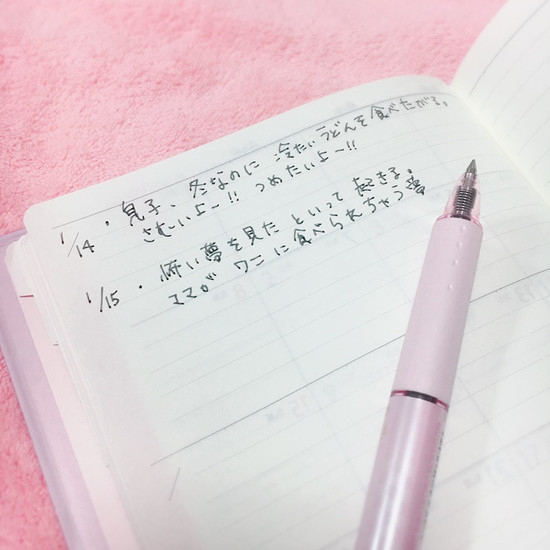 1/14 ・息子、冬なのに 冷たいうどんを食べたがる。
さむーいよー!! つめたいよー!!
1/15 ・怖い夢を見た といって 起きる。
ママが ワニに食べられちゃう夢